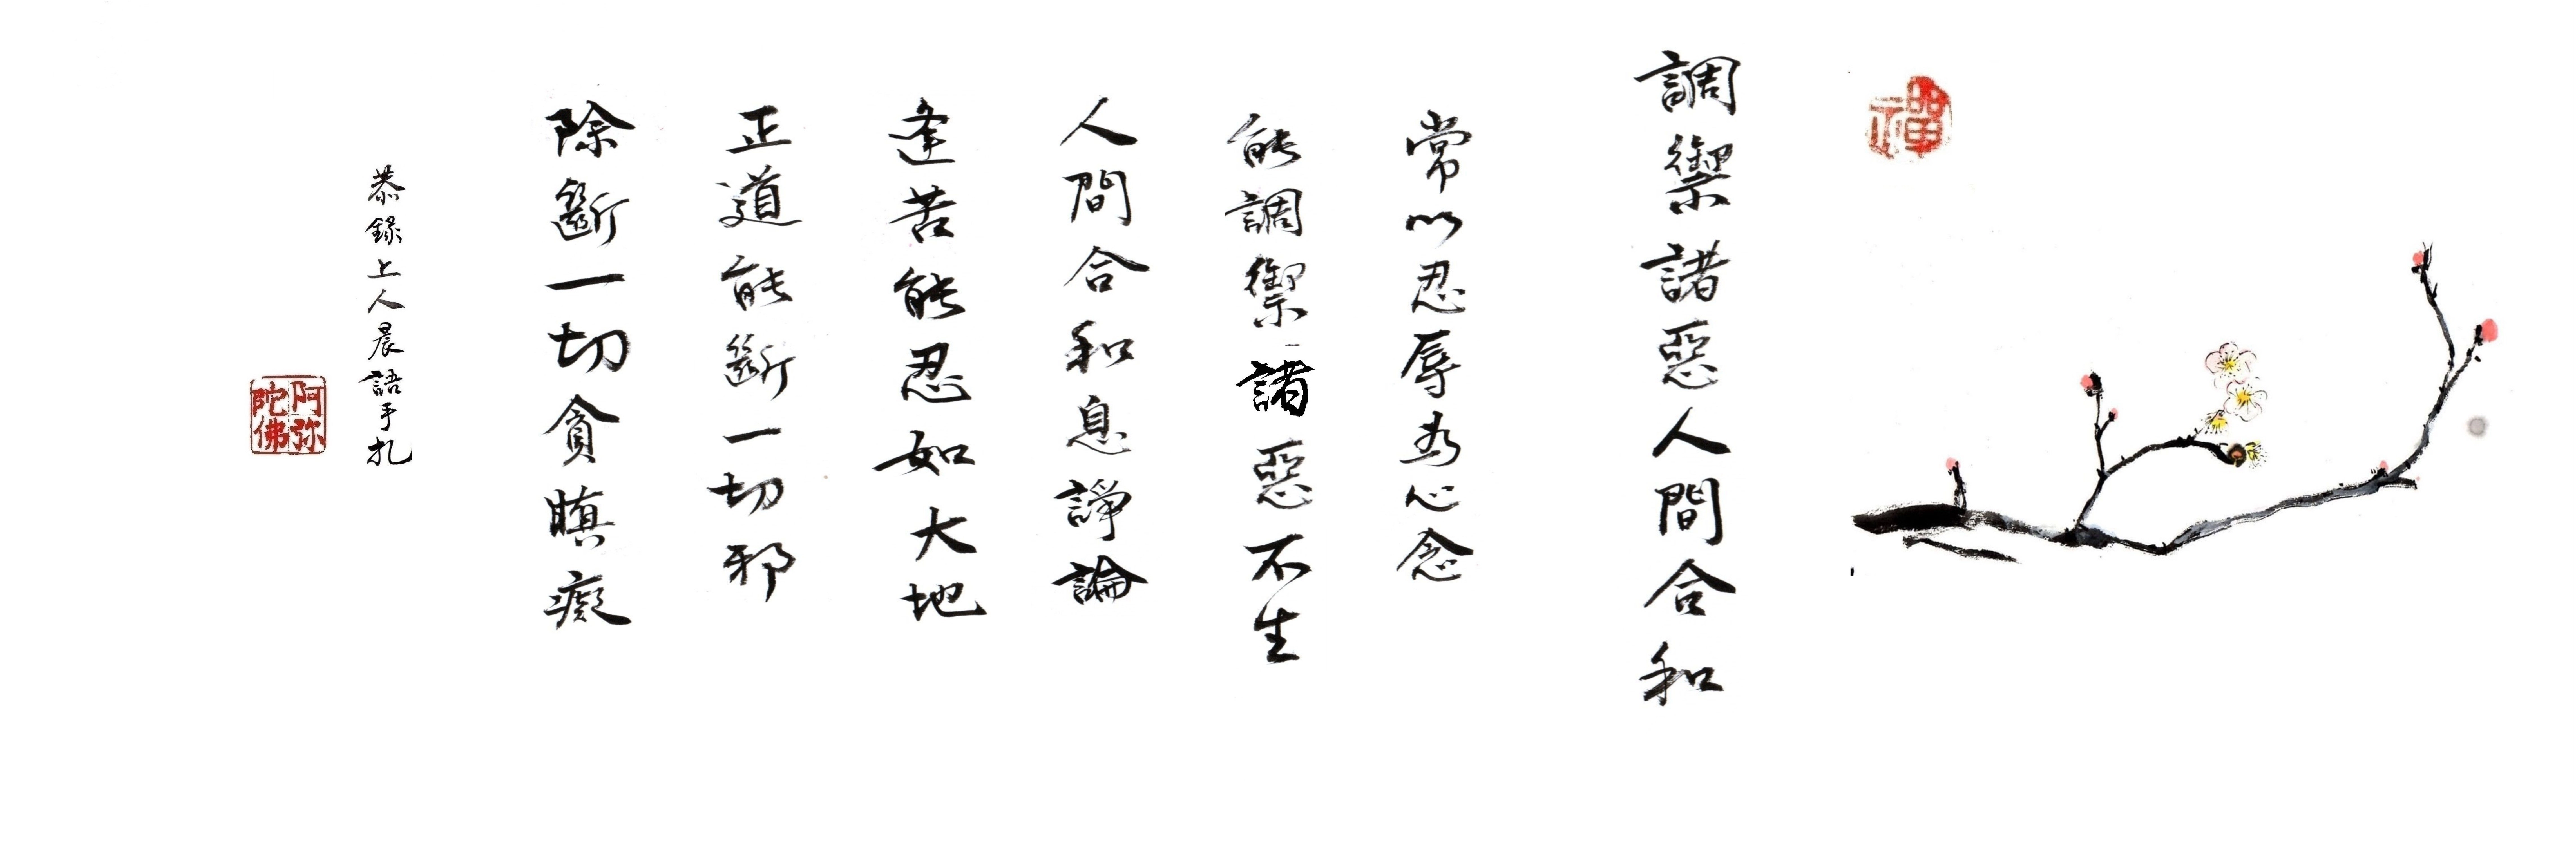 禪
調禦諸惡人間合和
常以忍辱為心念
能調禦諸惡不生
人間合和息諍論
逢苦能忍如大地
正道能斷一切邪
除斷一切貪瞋癡
恭錄上人晨語手札
阿弥陀佛